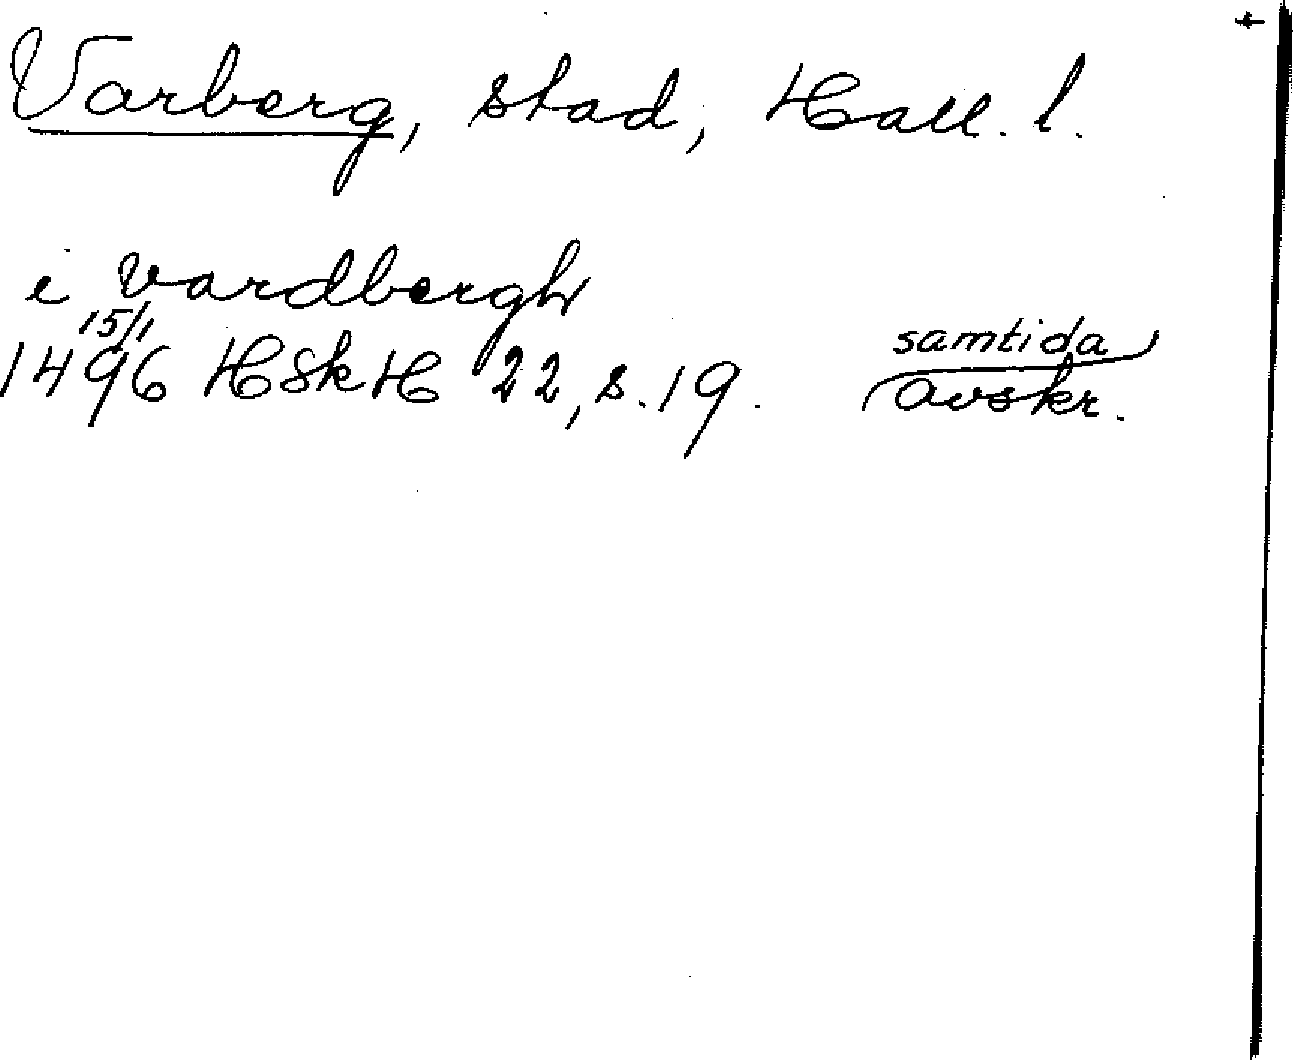 Varberg, stad, Hall. l.
i vardbergh
15/1
1496 HSkH 22, s. 19. samtida avskr.